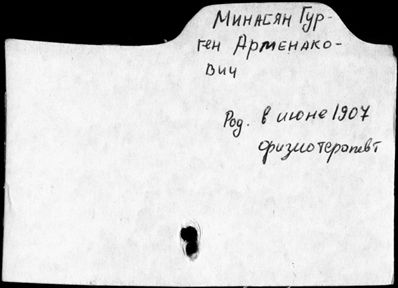 Минасян Гур-
ген Арменако-
вич
Род. в июне 1907
физиотерапевт